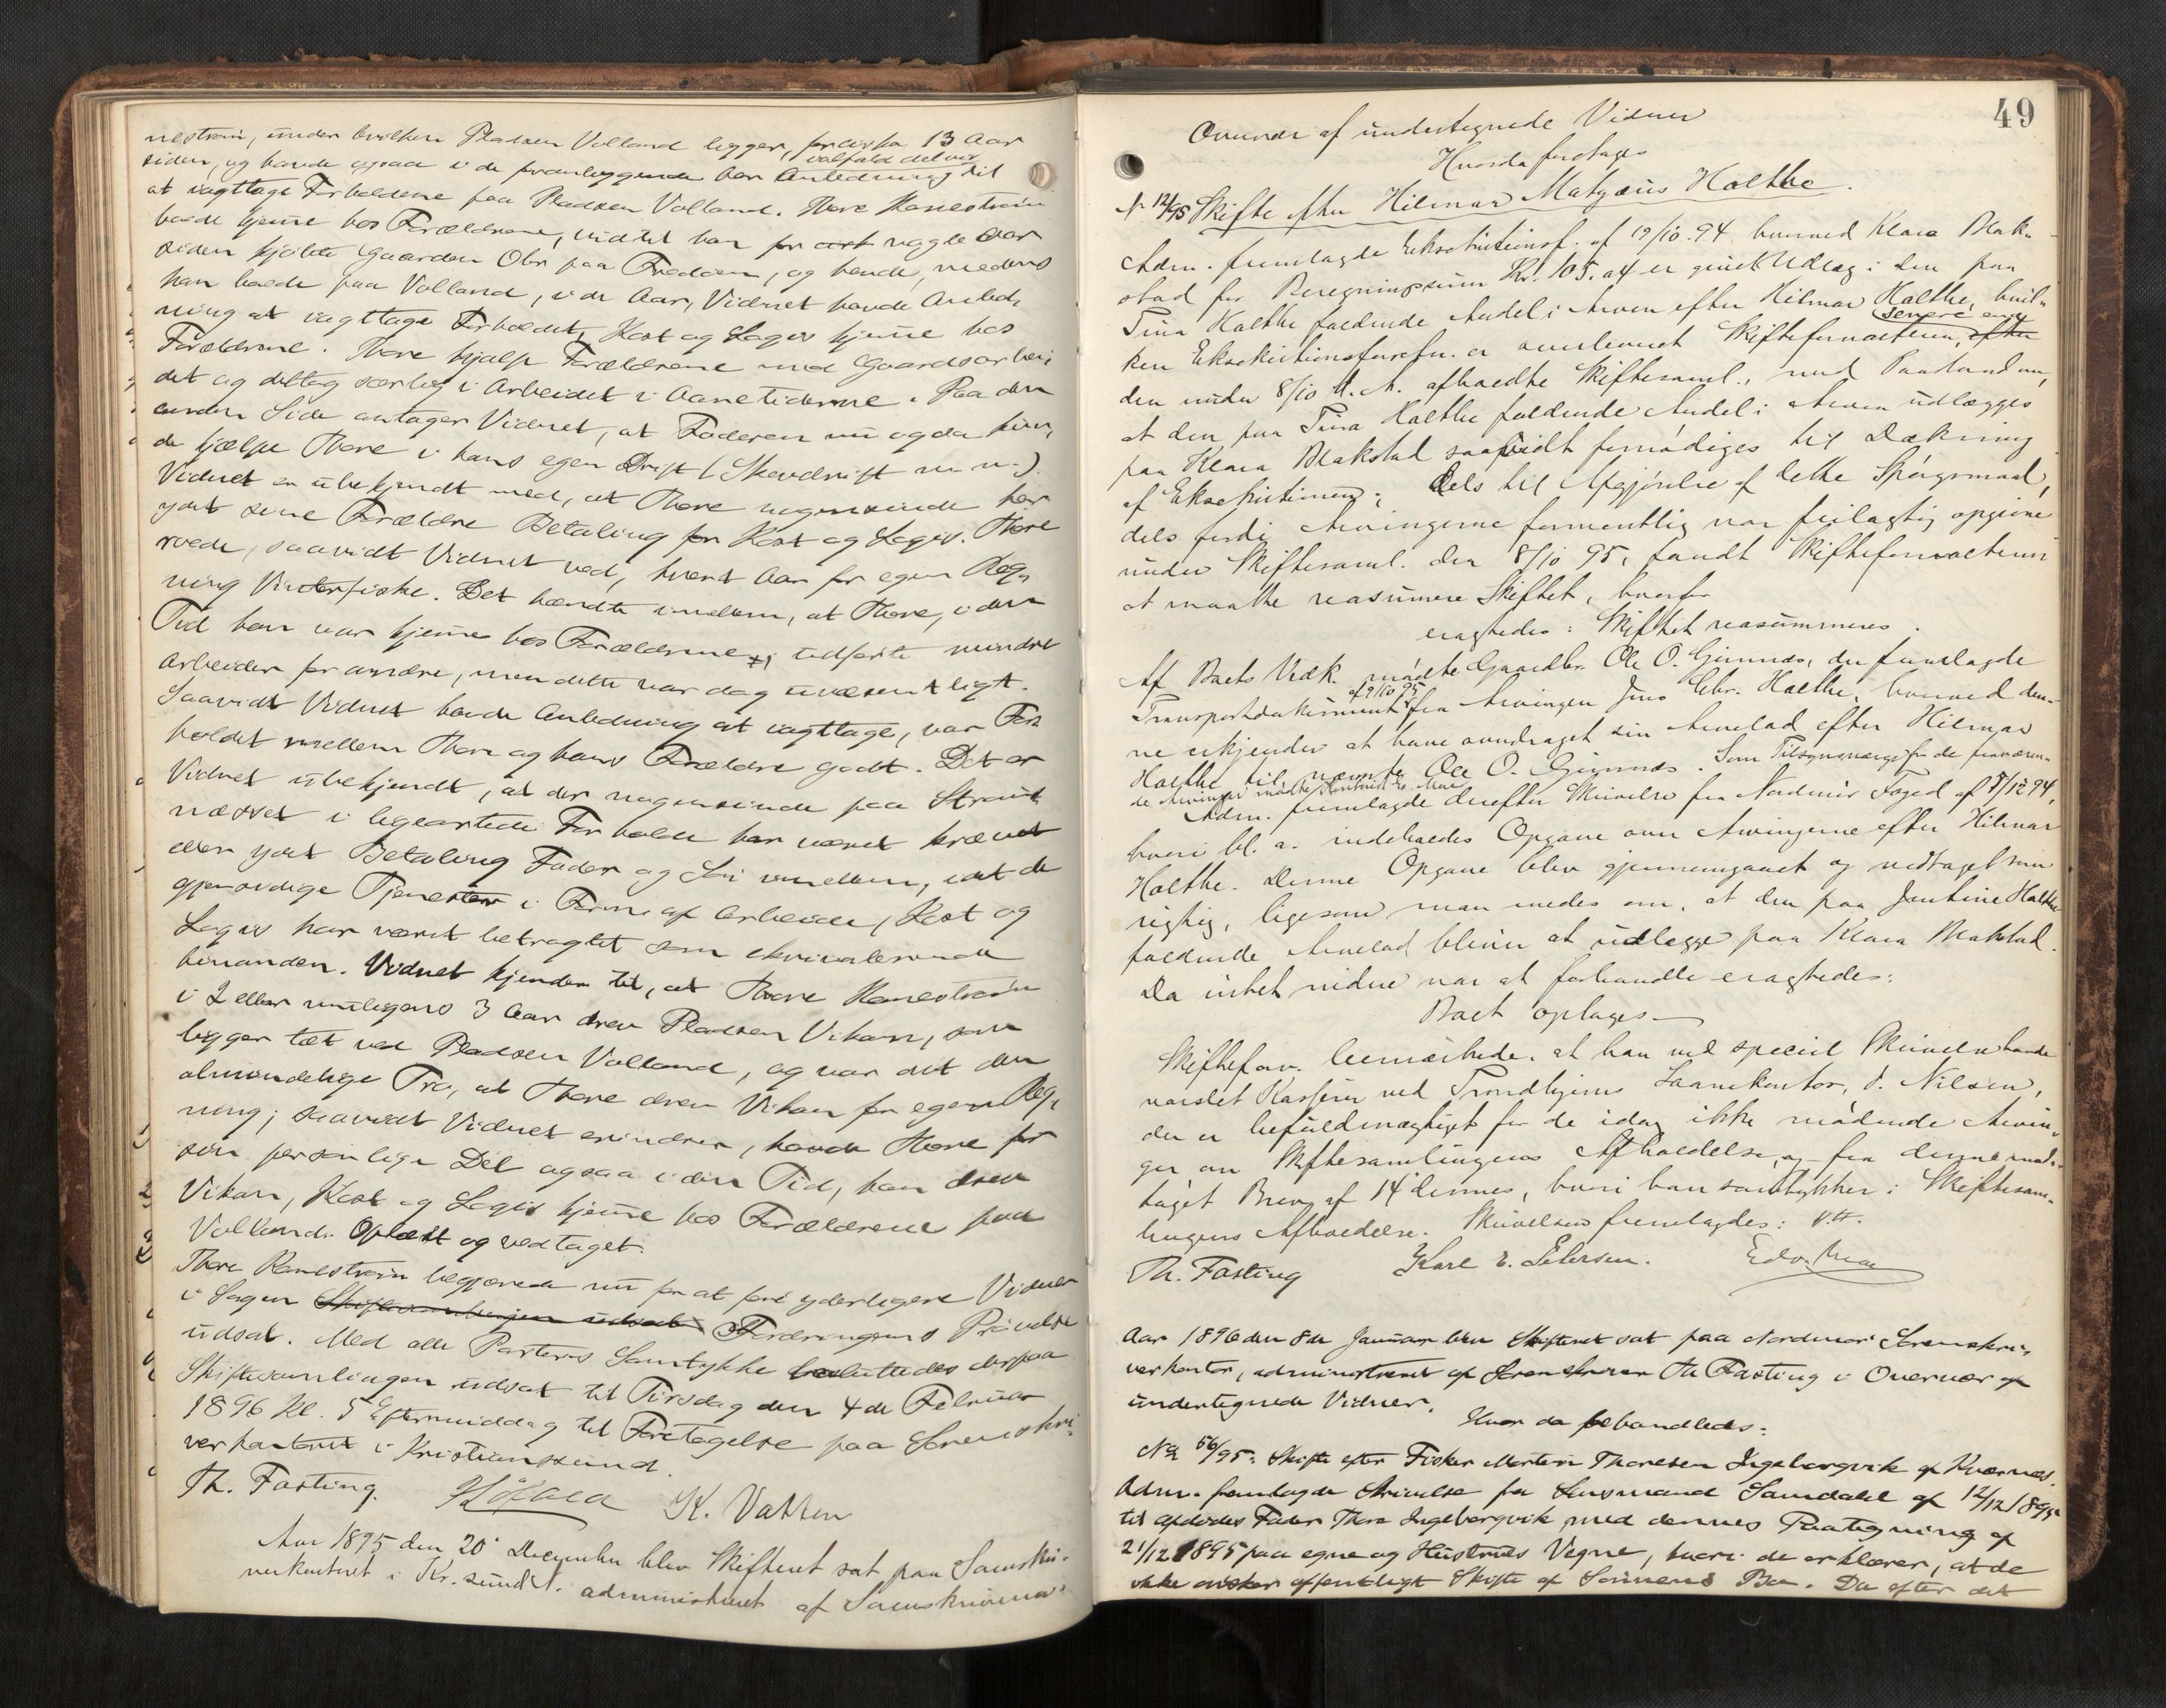 nestrøm, under hvilken Pladsen Volland ligger, for cirka 13 Aar
siden, og havde ogsaa i de foranliggende Aar Anledning til
at iagttage Forholdene paa Pladsen Volland. Thore Hanestrøm
havde hjemme hos Forældrene, indtil han for nogle Aar
siden kjøbte Gaarden Ohr paa Fredøen, og havde, medens
han boede paa Volland, i de Aar, Vidnet havde Anled-
ning at iagttage Forholdet, Kost og Logis hjemme hos
Forældrene. Thore hjalp Forældrene med Gaardsarbei-
det og deltog særlig i Arbeidet i Aanetiderne. Paa den
anden Side antager Vidnet, at Faderen nu og da kun-
de hjælpe Thore i hans egen Drift (Skovdrift m. m.).
Vidnet er ubekjendt med, at Thore nogensinde har
ydet sine Forældre Betaling for Kost og Logis. Thore
roede, saavidt Vidnet ved, hvert Aar for egen Reg-
ning Vinterfiske. Det hændte imellem, at Thore, i den
Tid han var hjemme hos Forældrene, udførte mindre
Arbeider for andre, men dette var dog uvæsentligt.
Saavidt Vidnet havde Anledning at iagttage, var For-
holdet mellem Thore og hans Forældre godt. Det er
Vidnet ubekjendt, at der nogensinde paa Strøms-
næsset i ligeartede Forholde har været krævet
eller ydet Betaling Fader og Søn imellem, idet de
gjensidige Tjenester i Form af Arbeide, Kost og
Logis har været betragtet som ekvivalerende
hinanden. Vidnet kjender til, at Thore Hanestrøm
i 2 eller muligens 3 Aar drev Pladsen Vikan, som
ligger tæt ved Pladsen Volland, og var det den
almindelige Tro, at Thore drev Vikan for egen Reg-
ning; saavidt Vidnet erindrer, havde Thore for
sin personlige Del ogsaa i den Tid, han drev
Vikan, Kost og Logis hjemme hos Forældrene paa
Volland. Oplæst og vedtaget.
Thore Hanestrøm begjærede nu for at føre yderligere Vidner
i Sagen Skiftesamlingen udsat Fordringens Prøvelse
udsat. Med alle Parters Samtykke besluttedes derpaa
Skiftesamlingen udsat til Tirsdag den 4de Februar
1896 Kl. 5 Eftermiddag til Foretagelse paa Sorenskri-
verkontoret i Kristianssund.
Th. Fasting. K. Vatten
Aar 1895 den 20de December blev Skifteret sat paa Sorenskri-
verkontoret i Kr.sund N. administreret af Sorenskriveren
49
Overvær af undertegnede Vidner
Hvorda foretages
No 12/95 Skifte efter Hilmar Matæus Holthe.
Adm. fremlagde Eksekutionsf. af 19/10.94 hvorved Klara Blak-
stad for Beregningssum Kr. 105.04 er givet Udlæg i den paa
Tina Holthe faldende Andel i Arven efter Hilmar Holthe, hvil-
ken Eksekutionsforretn. er oversendt Skifteforvalteren, efter senere end
den under 8/10 d. A. afholdte Skiftesaml., med Paastand om,
at den paa Tina Holthe faldende Andel i Arven udlægges
paa Klara Blakstad saavidt fornødiges til Dækning
af Eksekutionen. Dels til Afgjørelse af dette Spørgsmaal,
dels fordi Arvingerne formentlig var feilagtig opgivne
under Skiftesaml. den 8/10 95, fandt Skifteforvalteren
at maatte reasumere Skiftet, hvorfor
eragtedes: Skiftet reasummeres.
Af Boets Vedk. mødte Gaardbr. Ole O. Gimnæs, der fremlagde
Transportdokument af 9/10 95 fra Arvingen Jens Chr. Holthe, hvorved den-
ne erkjender at have overdraget sin Arvelod efter Hilmar
Holthe til nævnte Ole O. Gimnæs. Som Tilsynsværge for de fraværen-
de Arvinger mødte
Adm. fremlagde derefter Skrivelse fra Nordmør Foged af 7/12 94,
hvori bl. a. indeholdes Opgave over Arvingerne efter Hilmar
Holthe. Denne Opgave blev gjennemgaaet og vedtaget som
rigtig, ligesom man enedes om, at den paa Jentine Holthe
faldende Arvelod bliver at udlægge paa Klara Blakstad.
Da intet videre var at forhandle eragtedes:
Boet optages
Skifteforv. bemærkede, at han ved speciel Skrivelse havde
varslet Kasserer ved Trondhjems Laanekontor, J. Nilsen,
der er befuldmægtiget for de idag ikke mødende Arvin-
ger om Skiftesamlingens Afholdelse, og fra denne mod-
taget Brev af 14 dennes, hvori han samtykker i Skiftesam-
lingens Afholdelse. Skrivelsen fremlagdes:
Th. Fasting Karl E. Petersen. Edv. Moe
Aar 1896 den 8de Januar blev Skifteret sat paa Nordmør Sorenskri-
verkontor, administreret af Sorenskriver Th Fasting i Overvær af
undertegnede Vidner.
Hvor da behandledes:
No 56/95. Skifte efter Fisker Morten Thoresen Ingebergvik af Kværnæs.
Adm. fremlagde Skrivelse fra Lensmand Sandahl af 12/12 1895
til afdødes Fader Thore Ingebergvik med dennes Paategning af
21/12 1895 paa egne og Hustrues Vegne, hvori de erklærer, at de
ikke ønsker offentligt Skifte af Sønnens Bo. Da efter det